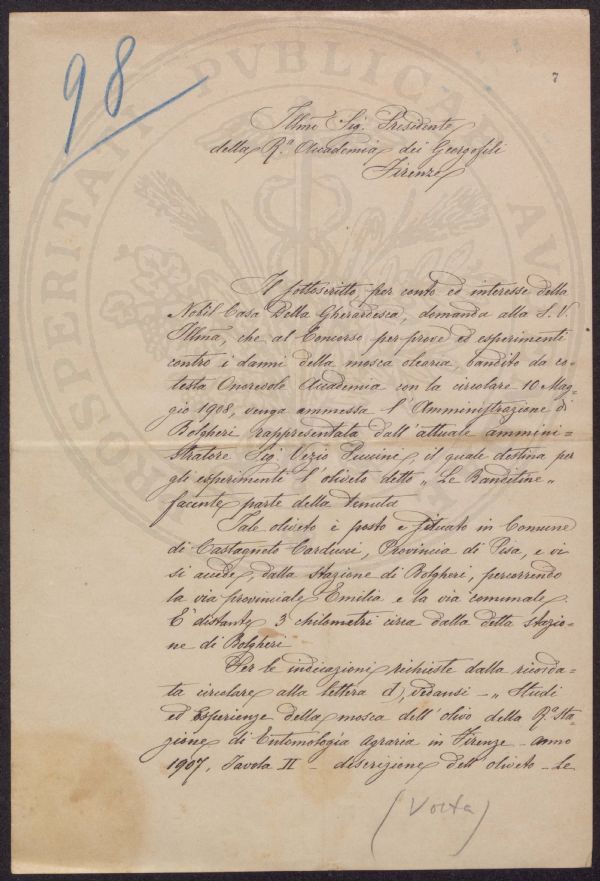 98
7
Illmo Sig. Presidente
della R.ª Accademia dei Georgofili
Firenze
Il sottoscritto per conto ed interesse della
Nobil Casa Della Gherardesca, domanda alla S. V.
Illma, che al Concorso per prove ed esperimenti
contro i danni della mosca olearia, bandito da co-
testa Onorevole Accademia con la circolare 10 Mag-
gio 1908, venga ammessa l'Amministrazione di
Bolgheri rappresentata dall'attuale ammini-
stratore Sig. Vezio il quale destina per
gli esperimenti l'oliveto detto „ Le Banditine „
facente parte della tenuta
Tale oliveto è posto e situato in Comune
di Castagneto Carducci, Provincia di Pisa, e vi
si accede, dalla stazione di Bolgheri, percorrendo
la via provinciale Emilia e la via comunale.
E' distante 3 chilometri circa dalla detta stazio-
ne di Bolgheri
Per le indicazioni richieste dalla ricorda-
ta circolare alla lettera d), vedansi - „ Studi
ed Esperienze della mosca dell'olivo della R.ª Sta-
zione di Entomologia Agraria in Firenze - anno
1907, Tavola II - descrizione dell'oliveto - Le
(Volta)
PROSPERITATI PVBLICAE AV